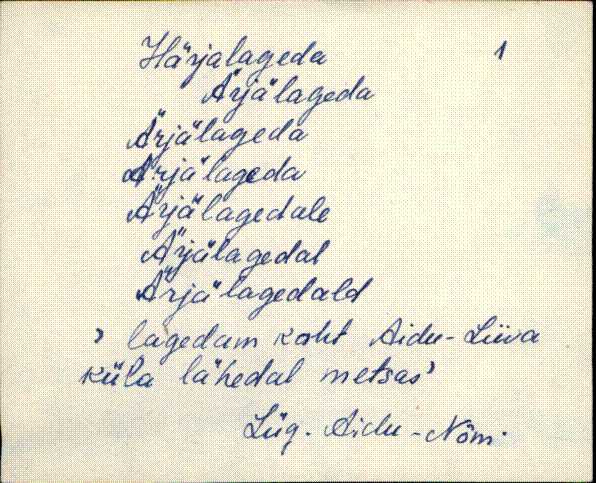 Härjalageda 1
Ärjälageda
Ärjälageda
Ärjälageda
Ärjälagedale
Ärjälagedal
Ärjälagedald
' lagedam koht Aidu-Liiva
küla lähedal metsas'
Lüg. Aidu-Nõm.